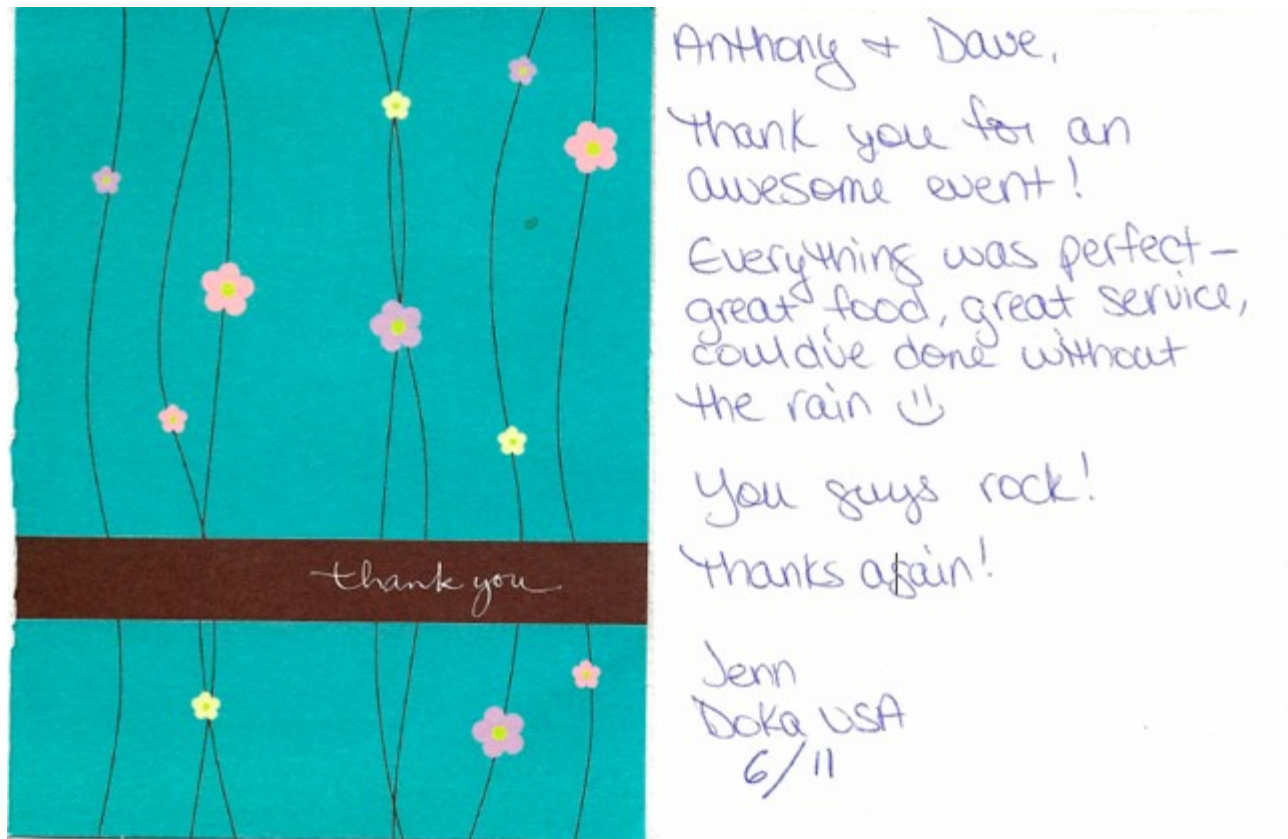 thank you
Anthony + Dave,
Thank you for an
awesome event!
Everything was perfect –
great food, great service,
could've done without
the rain
You guys rock!
Thanks again!
Jenn
Doka USA
6/11